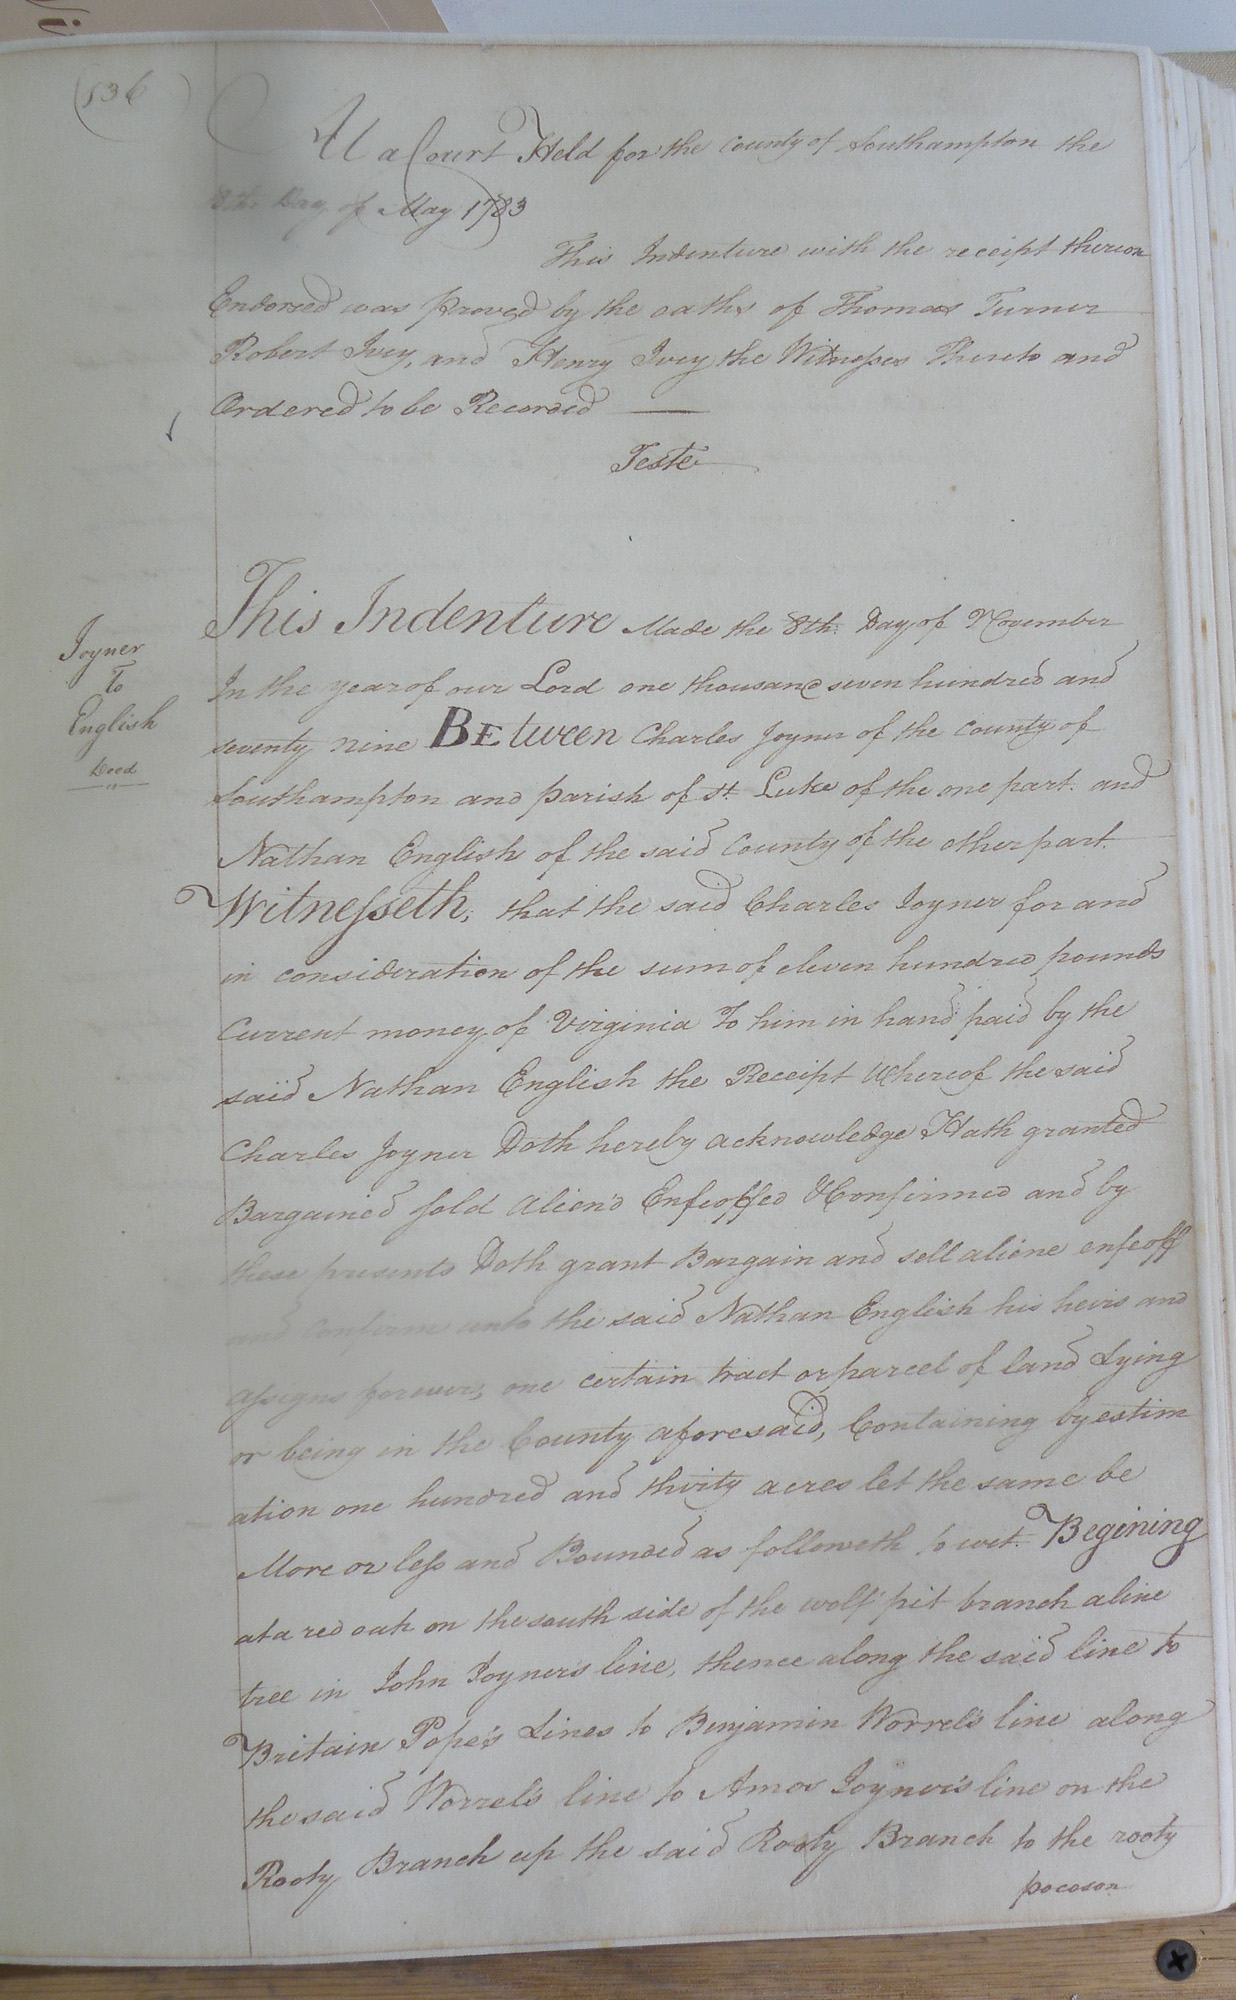 (136)
At a Court Held for the County of Southampton the
8th Day of May 1783
This Indenture with the receipt thereon
Endorsed was proved by the oaths of Thomas Turner
Robert Ivey, and Henry Ivey the Witnesses Thereto and
Ordered to be Recorded
Teste
This Indenture Made the 8th Day of November
In the year of our Lord one thousand seven hundred and
seventy nine BEtween Charles Joyner of the County of
Southampton and parish of St. Luke of the one part. and
Nathan English of the said County of the other part.
Witnesseth, that the said Charles Joyner for and
in consideration of the sum of eleven hundred pounds
Current money of Virginia To him in hand paid by the
said Nathan English the Receipt Whereof the said
Charles Joyner Doth hereby acknowledge Hath granted
Bargained sold alien'd Enfeoffed & Confirmed and by
these presents Doth grant Bargain and sell aliene enfeoff
and Confirm unto the said Nathan English his heirs and
assigns forever, one certain tract or parcel of land Lying
or being in the County aforesaid, Containing by estim
ation one hundred and thirty acres let the same be
More or less and Bounded as followeth to wit. Begining
at a red oak on the south side of the wolf pit branch a line
tree in John Joyners line, thence along the said line to
Britain Pope's Lines to Benjamin Worrel's line along
the said Worrel's line to Amos Joyner's line on the
Rooty Branch up the said Rooty Branch to the rooty
pocoson
Joyner
To
English
Deed